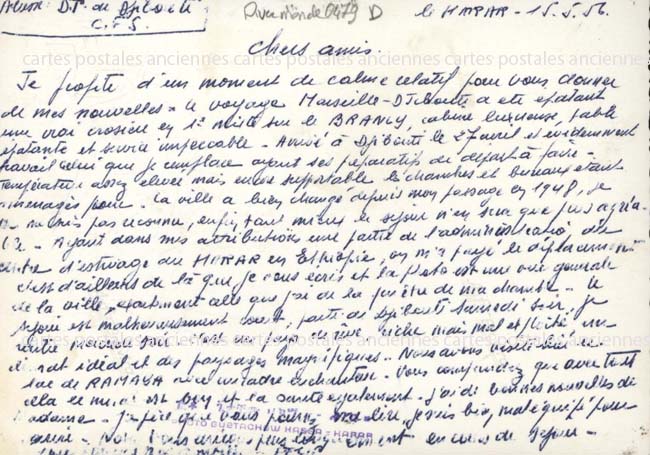 D.P. de Djibouti
C.F.S.
le HARAR - 15.5.56.
Chers amis.
Je profite d'un moment de calme relatif pour vous donner
de mes nouvelles - le voyage Marseille-Djibouti a été épatant
une vrai croisière en 1e mixte sur le BRANLY, cabine luxueuse, table
épatante et service impeccable - Arrivé à Djibouti le 27 avril et évidemment
travail celui que je remplace ayant ses préparatifs de départ à faire -
température assez élevée mais encore supportable les chambres et bureaux étant
aménagés pour - La ville a bien changé depuis mon passage en 1948, je
ne me suis pas reconnu, enfin tant mieux le séjour n'en sera que plus agréa
- Ayant dans mes attributions une partie de l'administration du
centre d'estivage du HARAR en Ethiopie, on m'a payé le déplacement
c'est d'ailleurs de là que je vous écris et la photo est une vue générale
de la ville, exactement celle que j'ai de la fenêtre de ma chambre - le
séjour est malheureusement court, parti de Djibouti Samedi soir, je
rentre mercredi soir - riche mais mal exploité, un
climat idéal et des paysages magnifiques - Nous avons visité hier le
lac de RAMAYA dans un cadre enchanteur - Vous comprendrez que avec tout
cela le moral est bon et la santé également - J'ai de bonnes nouvelles de
Madame - que vous pourrez me lire, je suis bien mal équipé pour
plus longuement en cours de séjour -
PHOTO GUETACHOW KASSA - HARAR